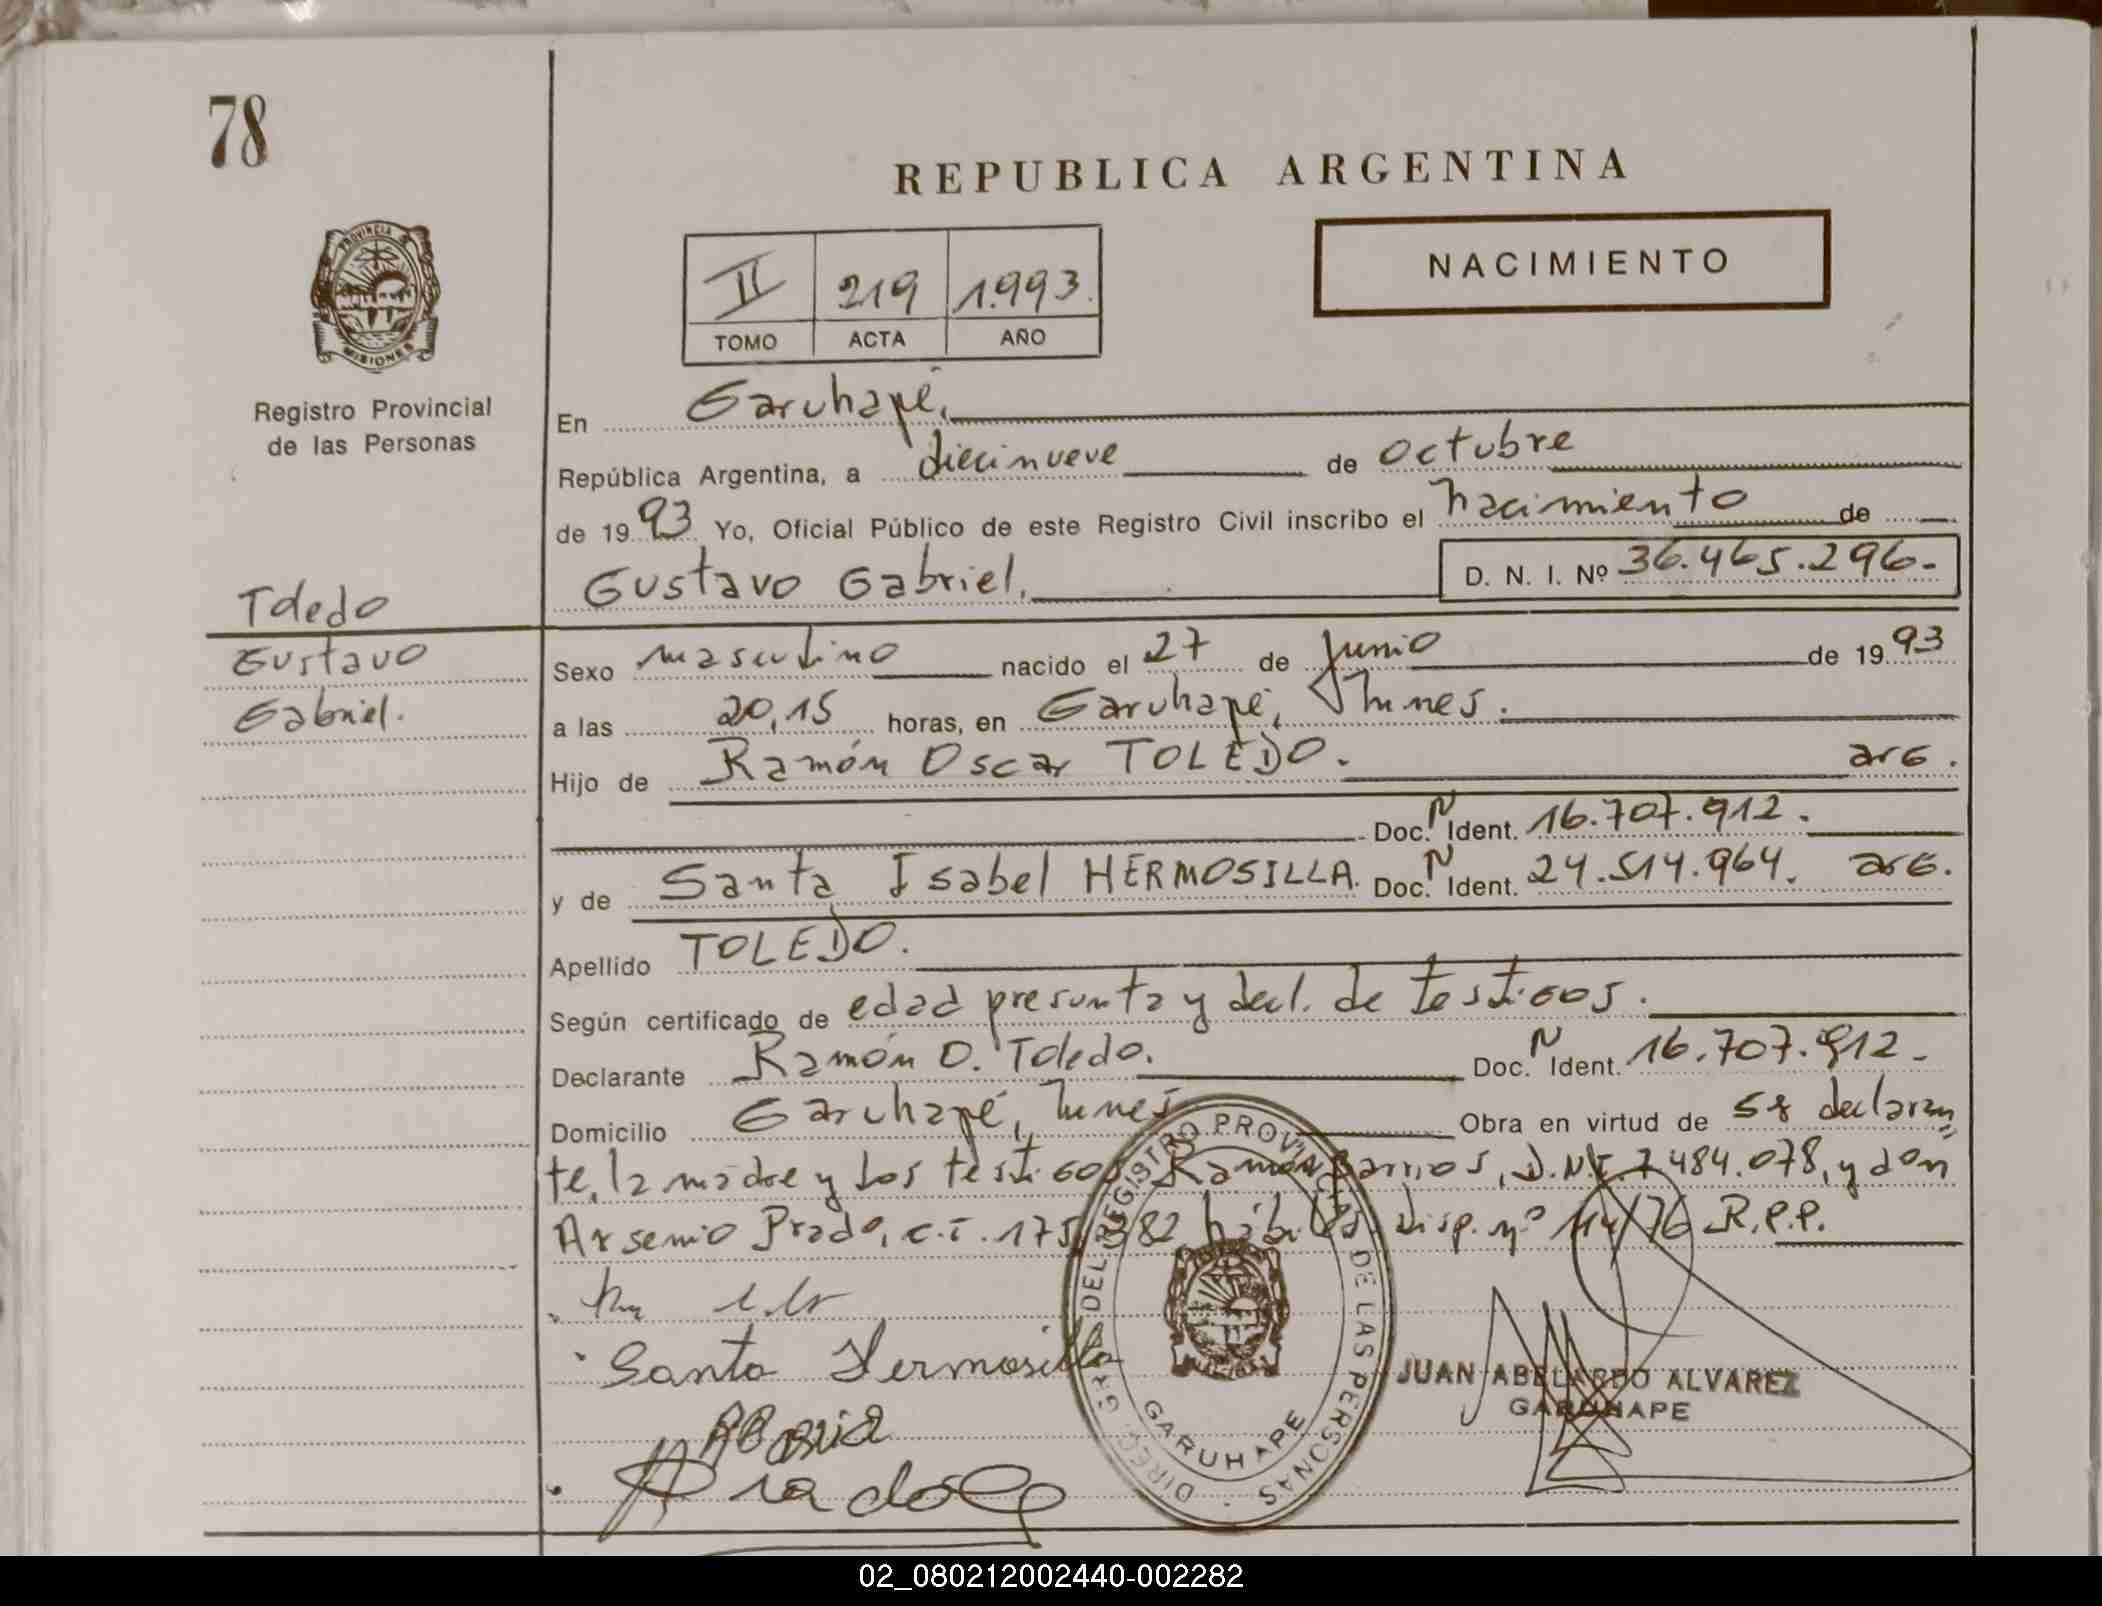 78
REPUBLICA ARGENTINA
NACIMIENTO
II 219 1.993.
TOMO ACTA AÑO
PROVINCIA DE
MISIONES
Registro Provincial
de las Personas
En Garuhapé,
República Argentina, a diecinueve de octubre
de 1993 Yo, Oficial Público de este Registro Civil inscribo el nacimiento de
Gustavo Gabriel. D. N. I. Nº 36.465.296.-
Toledo
Gustavo
Gabriel.
Sexo masculino nacido el 27 de Junio de 1993
a las 20,15 horas, en Garuhapé,
Hijo de Ramón Oscar TOLEDO. arg.
Doc. N Ident. 16.707.912.
y de Santa Isabel HERMOSILLA. Doc. N Ident. 24.514.964. arg.
Apellido TOLEDO.
Según certificado de edad presunta y decl. de testigos.
Declarante Ramón O. Toledo. Doc. N Ident. 16.707.912.-
Domicilio Garuhapé, Obra en virtud de declaran
te, la madre y los testigos Ramón Barrios, D.N.I. 7.484.078, y don
Arsenio Prado, c.i. 175.382, hábiles, disp. nº 114/76 R.P.P.
Santa Hermosilla
Prado
DIREC. GRAL. DEL REGISTRO PROVINCIAL DE LAS PERSONAS
GARUHAPE
JUAN ABELARDO ALVAREZ
GARUHAPE
02_080212002440-002282